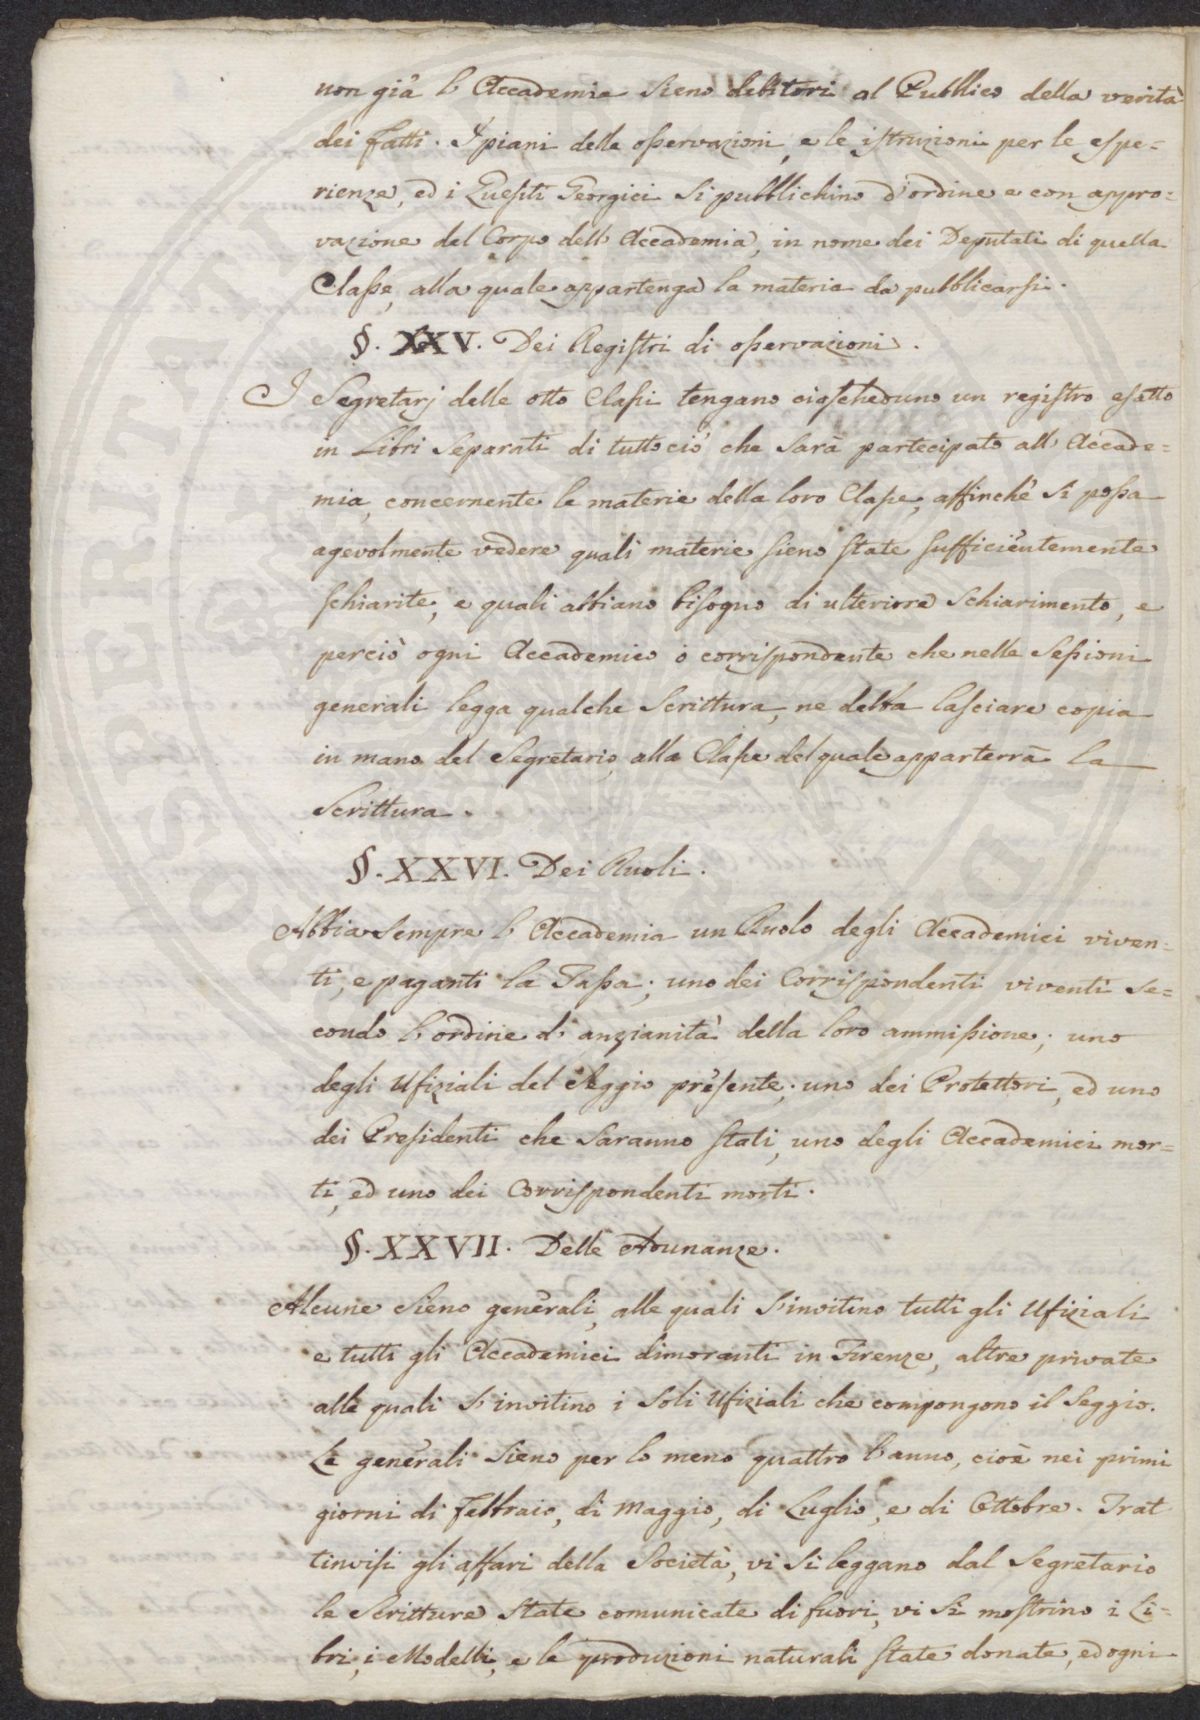 non già l'Accademia sieno debitori al Pubblico della verità
dei fatti. I piani delle osservazioni, e le istruzioni per le espe=
rienze, ed i Quesiti Georgici si pubblichino d'ordine e con appro=
vazione del Corpo dell'Accademia, in nome dei Deputati di quella
Classe, alla quale appartenga la materia da pubblicarsi.
§. XXV. Dei Registri di osservazioni.
I Segretarj delle otto Classi tengano ciascheduno un registro esatto
in Libri separati di tutto ciò che sarà partecipato all'Accade=
mia, concernente le materie della loro Classe, affinchè si possa
agevolmente vedere quali materie sieno state sufficientemente
schiarite, e quali abbiano bisogno di ulteriore schiarimento, e
perciò ogni Accademico o corrispondente che nelle sessioni
generali legga qualche Scrittura, ne debba lasciare copia
in mano del Segretario, alla Classe del quale apparterrà la
Scrittura.
§. XXVI. Dei Ruoli.
Abbia sempre l'Accademia un Ruolo degli Accademici viven=
ti, e paganti la Tassa; uno dei Corrispondenti viventi se=
condo l'ordine d'anzianità della loro ammissione; uno
degli Ufiziali del Seggio presente; uno dei Protettori, ed uno
dei Presidenti che saranno stati, uno degli Accademici mor=
ti, ed uno dei Corrispondenti morti.
§. XXVII. Delle Adunanze.
Alcune sieno generali, alle quali s'invitino tutti gli Ufiziali
e tutti gli Accademici dimoranti in Firenze, altre private
alle quali s'invitino i soli Ufiziali che compongono il seggio.
Le generali sieno per lo meno quattro l'anno, cioè nei primi
giorni di Febbraio, di Maggio, di Luglio, e di Ottobre. Trat
tinvisi gli affari della Società, vi si leggano dal Segretario
le Scritture state comunicate di fuori, vi si mostrino i Li=
bri, i Modelli, e le produzioni naturali state donate, ed ogni